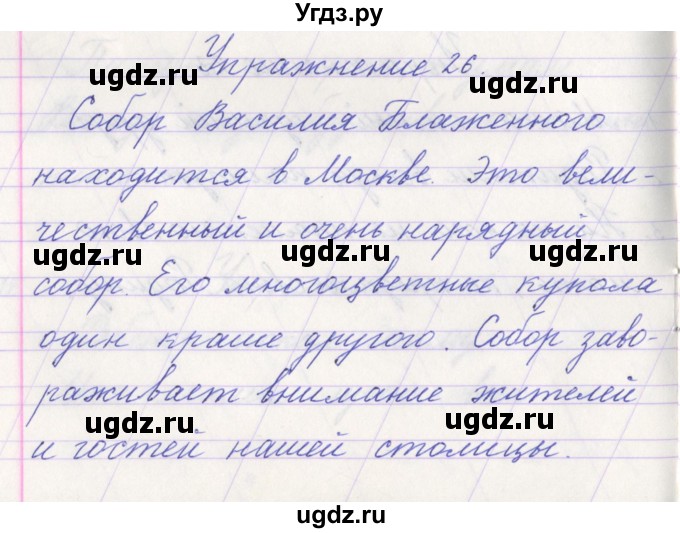 Угдз.ру
Упражнение 26.
ugdz.ru ugdz.ru
Собор Василия Блаженного
находится в Москве. Это вели-
чественный и очень нарядный
ugdz.ru ugdz.ru ugdz.ru
собор. Его многоцветные купола
один краше другого. Собор заво-
раживает внимание жителей
ugdz.ru ugdz.ru
и гостей нашей столицы.
ugdz.ru